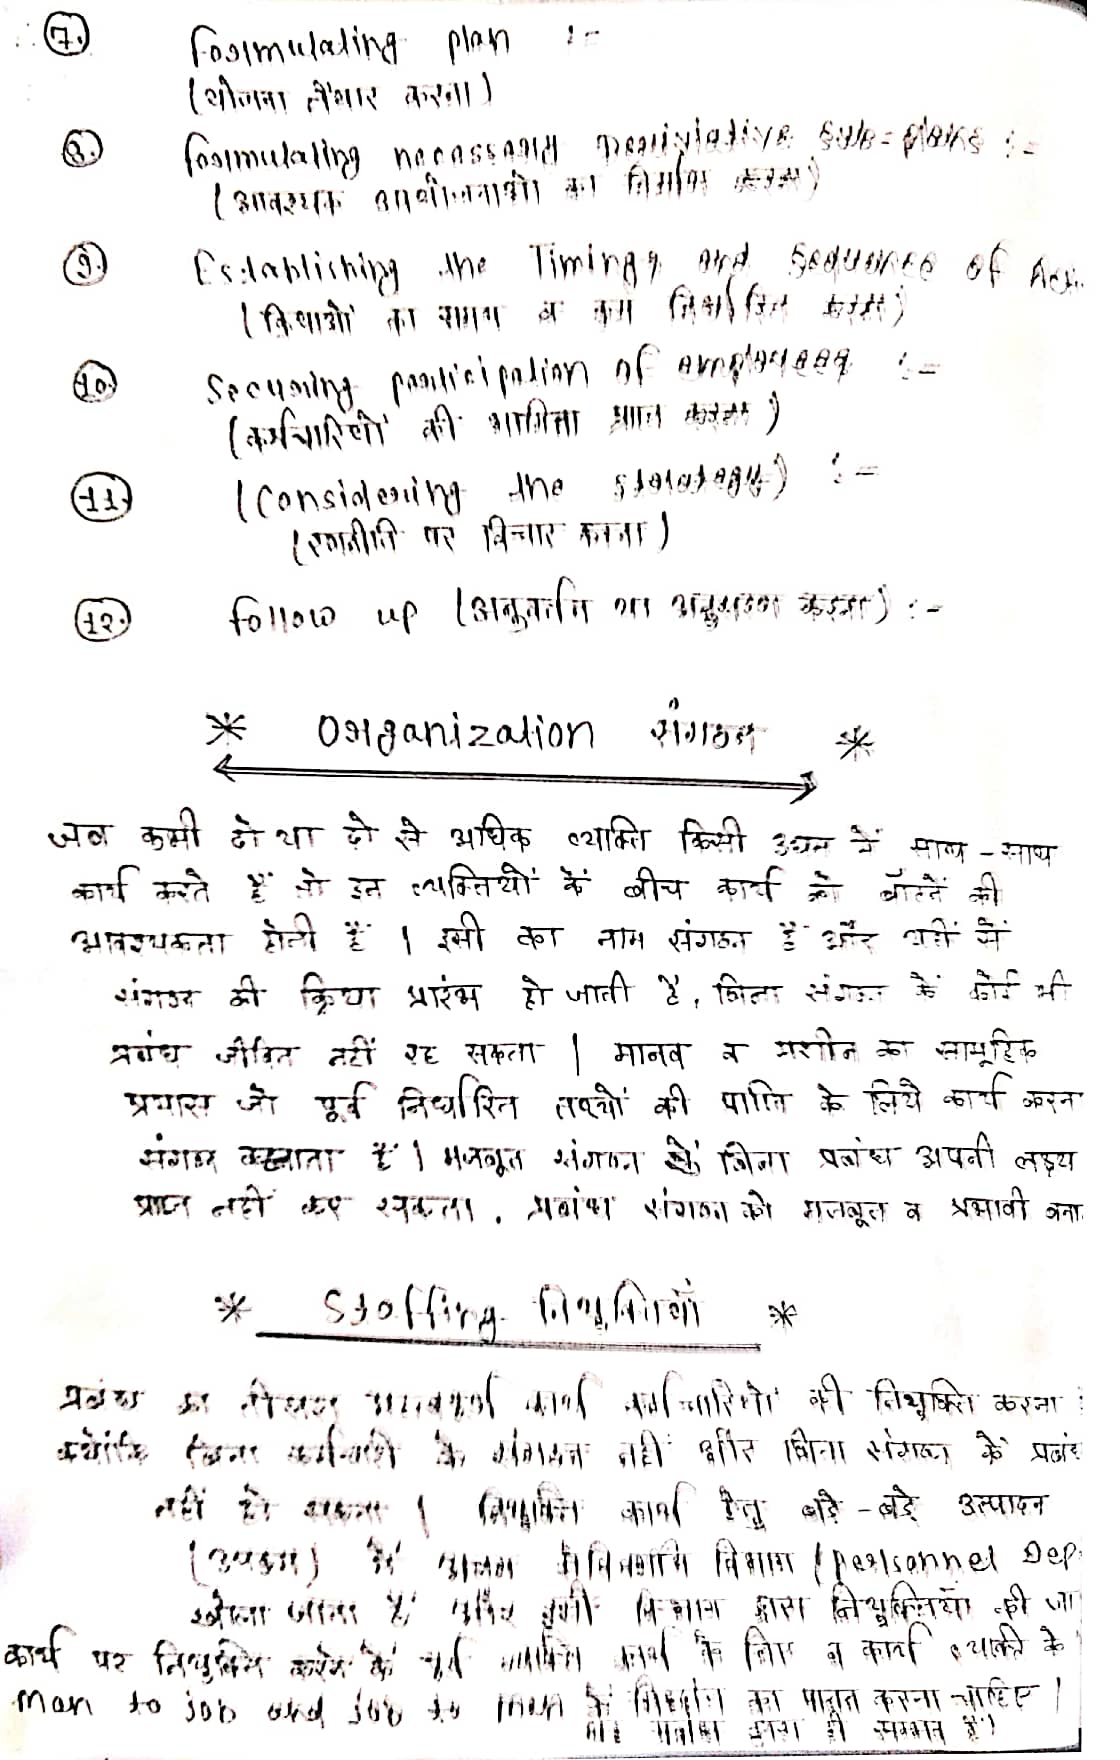 7. Formulating plan :-
(योजना तैयार करना)
8. Formulating necessary sub-plans :-
(आवश्यक उपयोजनाओं का निर्माण करना)
9. Establishing the Timing and Sequence of
(क्रियाओं का समय व क्रम निर्धारित करना)
10. Securing participation of employees :-
(कर्मचारियों की भागिता प्राप्त करना)
11. (Considering the stratategy) :-
(रणनीति पर विचार करना)
12. follow up (अनुवर्तन या अनुगमन करना) :-
* Organization संगठन *
जब कभी दो या दो से अधिक व्यक्ति किसी उपक्रम में साथ-साथ
कार्य करते हैं तो इन व्यक्तियों के बीच कार्य को बाँटने की
आवश्यकता होती हैं । इसी का नाम संगठन हैं और यहीं से
संगठन की क्रिया प्रारंभ हो जाती है, बिना संगठन के कोई भी
प्रबंध जीवित नहीं रह सकता | मानव व मशीन का सामूहिक
प्रयास जो पूर्व निर्धारित लक्ष्यों की प्राप्ति के लिये कार्य करन
संगठन कहलाता हैं । मजबूत संगठन के बिना प्रबंध अपनी लक्ष्य
प्राप्त नहीं कर सकता, प्रबंध संगठन को मजबूत व प्रभावी बना
* Staffing नियुक्तियाँ *
प्रबंध का तीसरा महत्वपूर्ण कार्य कर्मचारियों की नियुक्ति करना
क्योंकि बिना कर्मचारी के संगठन नहीं और बिना संगठन के प्रबंध
नहीं हो सकता । नियुक्ति कार्य हेतु बड़े-बड़े उत्पादन
(उपक्रम) में अलग सेविवर्गीय विभाग (personnel Dep
खोला जाता है, और इसी विभाग द्वारा नियुक्तियाँ की जा
कार्य पर नियुक्ति करने के पूर्व व्यक्ति कार्य के लिए व कार्य व्यक्ति के
man to job and job to man के सिद्धांत का पालन करना चाहिए |